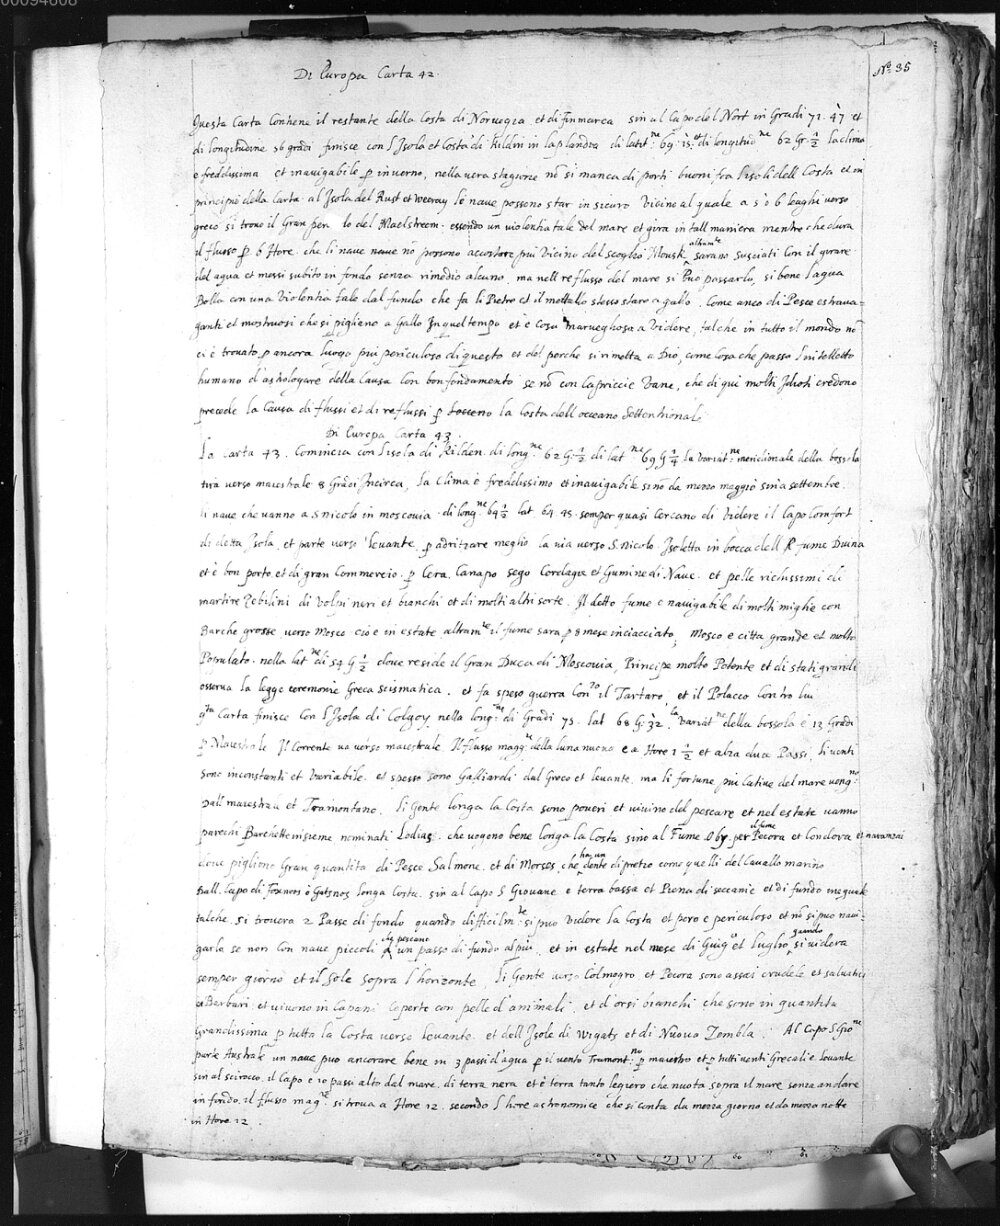 00094608
Di Europa Carta 42.
No. 35
Questa Carta Contiene il restante della Costa di Norvegia et di Finmarca sin al Capo del Nort in Gradi 71. 47 et
di longitudine 56 gradi finisce con l'Isola et Costa di Kildin in laplandia di latit.ne 69. 15. et di longitud.ne 62 Gr. ½ la clima
e freddissima et inavigabile p inverno, nella vera stagione nō si manca di porti buoni fra l'isole dell Costa et in
principio della Carta. al Isola del Rust et Weeray le nave possono star in sicuro Vicino al quale a 5 ò 6 leaghi verso
greco si trova il Gran per lo del Maelstreem. essendo un violentia tale del mare et gira in tall maniera mentre che dura
il flusso p 6 Hore. che li nave nave nō possono accostare piu Vicino del scoglio Mousk, altram.te sarano susciati Con il girare
del agua et messi subito in fondo senza rimedio alcuno, ma nell reflusso del mare si puo passarlo, si bene l'agua
Bolla con una Violentia tale dal fundo che fa li Pietre et il mettallo stesso stare a gallo. Come anco di Pesce estrava=
ganti et mostruosi che si pigliano a Gallo In quel tempo et è Cosa marveghosa a Videre, talche in tutto il mondo nō
ci è trovato p ancora luogo piu periculoso di questo et del perche si rimetta a Dio, come Cosa che passo l'intelletto
humano d'astrologare della Causa Con bon fondamento se nō con Capriccie Vane, che di qui molti Idioti credono
precede la Causa di flussi et di reflussi p tosceno la Costa dell'oceano Settentrional.
Di Europa Carta 43.
La carta 43. Comincia con l'isola di Kilden. di long.ne 62 G. ½ di lat.ne 69 G ¼ la variat.ne meridionale della bossola
tira verso maestrale 8 Gradi Incirca, la Clima è freddissimo et inavigabile sinō da mezzo maggio sin'a settembre.
li nave che vanno a S nicolo in moscovia. di long.ne 69 ½ lat. 64. 45. semper quasi Cercano di Videre il Capo Comfort
di detta Isola. et parte verso levante. p adritzare meglio la via verso S. Nicolo. Isoletta in bocca dell R fume Duina
et è bon porto et di gran Commercio. p Cera, Canapo sego Cordagie et Gumine di Nave. et pelle richissimi di
martire Zebilini di Volpi neri et bianchi et di molti altri sorte. Il detto fume e navigabile di molti miglie con
Barche grosse verso Mosco ciò e in estate altram.te il fume sara p 8 mese inciacciato, Mosco e citta grande et molto
Populato. nella lat.ne di 54 G ½ dove reside il Gran Duca di Moscovia, Principe molto Potente et di stati grandi
osserva la legge ceremonie Greca scismatica. et fa speso guerra Con.ro il Tartaro, et il Polacco Contro lui
q.ta Carta finisce con l'Isola di Colgoy, nella long.ne di Gradi 75. lat 68 G. 32. la Variat.ne della bossola e 13 Gradi
p Maestrale Il Corrente va verso maestrale. Il flusso magg.re della luna nuova e a Hore 1 ½ et alza due Passi. li venti
sono inconstanti et Variabile. et spesso sono Galliardi dal Greco et levante. ma li fortune piu Cative del mare veng.no
dall maestrza et Tramontano. Li Gente longa la Costa sono poveri et vivino del pescare et nel estate vanno
parechi Barchette insieme nominati Lodias. che vogono bene longa la Costa sino al Fume Oby, per il fume Pecora et Condova et navanzai
dove pigliono Gran quantita di Pesce Salmone. et di Morses, che han un dente di pretzo come quelli del Cavallo marino
Dall. Capo di Foxnos ò Gotsnos longa Costa. sin al Capo S Giovane e terra bassa et Piena di seccanie et di fundo ineguale
talche si trovera 2 Passe di fondo quando difficilm.te si puo Videre la Costa et pero e periculoso et nō si puo navi=
garla se non Con nave piccoli che pescano un passo di fundo al piu, et in estate nel mese di Guig.o et luglio quando si videra
semper giorno et il Sole sopra l'horizonte. Li Gente verso Colmogro et Pecora sono assai crudele et salvatici
et Barbari. et vivono in Capani Coperte con pelle d'animali. et d'orsi bianchi che sono in quantita
Grandissima p tutta la Costa verso levante. et dell Isole di Wigats et di Nuova Zembla. Al Capo S Gio.ne
parte Australe un nave puo ancorare bene in 3 passi d'agua p il vento Tramont.no p maestro et p tutti venti Grecalie. levante
sin al scirocco. il Capo e 10 passi alto dal mare. di terra nera et è terra tanto legiero che nuota sopra il mare senza andare
in fondo. il flusso mag.re si trova a Hore 12. secondo l'hore astronomice che si conta da mezza giorno et da mezza notte
in Hore 12.